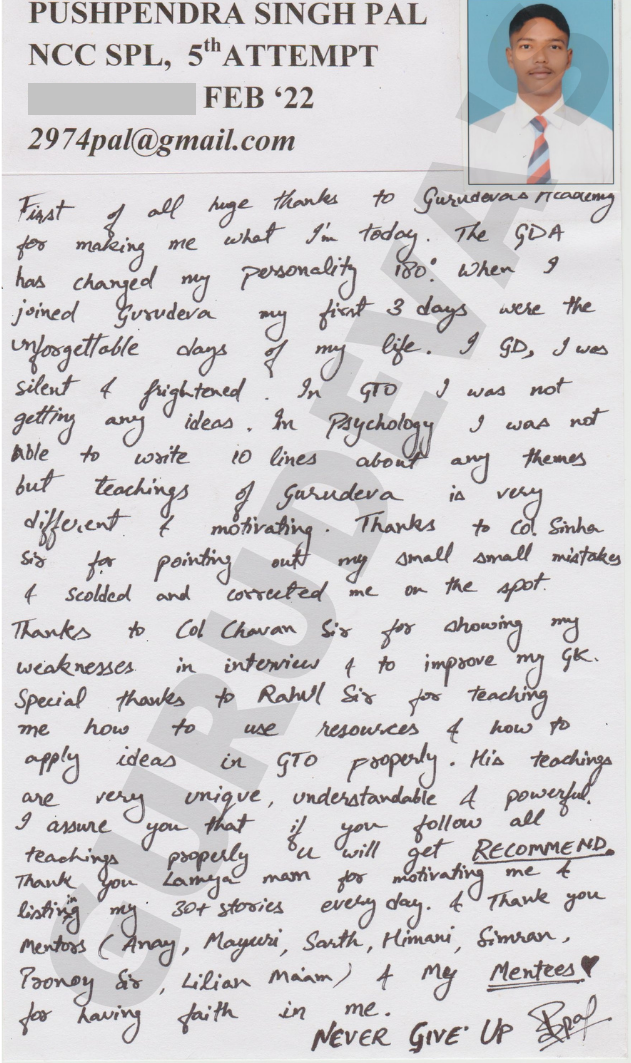 PUSHPENDRA SINGH PAL
NCC SPL, 5th ATTEMPT
FEB ‘22
2974pal@gmail.com
First of all huge thanks to Gurudevas Academy
for making me what I'm today. The GDA
has changed my personality 180°. When I
joined Gurudeva my first 3 days were the
unforgettable days of my life. I GD, I was
silent & frightened. In GTO I was not
getting any ideas. In Psychology I was not
able to write 10 lines about any themes
but teachings of Gurudeva is very
different & motivating. Thanks to Col. Sinha
Sir for pointing out my small small mistakes
& scolded and corrected me on the spot.
Thanks to Col Chavan Sir for showing my
weaknesses in interview & to improve my GK.
Special thanks to Rahul Sir for teaching
me how to use resources & how to
apply ideas in GTO properly. His teachings
are very unique, understandable & powerful.
I assure you that if you follow all
teachings properly u will get RECOMMEND.
Thank you Lamya mam for motivating me &
listing in my 30+ stories every day. & Thank you
Mentors (Anay, Mayuri, Sarth, Himani, Simran,
Pronoy Sir, Lilian Ma'am) & My Mentees ♥
for having faith in me.
NEVER GIVE UP
GURUDEVA'S